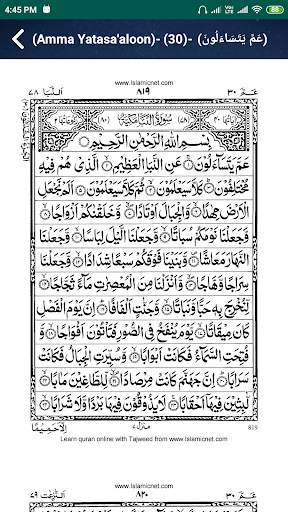 4:45 PM
(Amma Yatasa'aloon)- (30)- (عَمَّ يَتَسَاءَلُونَ)
www.Islamicnet.com
النبا ٧٨ ٨١٩ عم ٣٠
سُوْرَةُ النَّبَاِ مَكِّيَّةٌ
بِسْمِ اللهِ الرَّحْمٰنِ الرَّحِيْمِ
عَمَّ يَتَسَآءَلُوْنَ ۝١ عَنِ النَّبَاِ الْعَظِيْمِ ۝٢ الَّذِيْ هُمْ فِيْهِ
مُخْتَلِفُوْنَ ۝٣ كَلَّا سَيَعْلَمُوْنَ ۝٤ ثُمَّ كَلَّا سَيَعْلَمُوْنَ ۝٥ اَلَمْ نَجْعَلِ
الْاَرْضَ مِهٰدًا ۝٦ وَّالْجِبَالَ اَوْتَادًا ۝٧ وَّخَلَقْنٰكُمْ اَزْوَاجًا ۝٨
وَّجَعَلْنَا نَوْمَكُمْ سُبَاتًا ۝٩ وَّجَعَلْنَا الَّيْلَ لِبَاسًا ۝١٠ وَّجَعَلْنَا
النَّهَارَ مَعَاشًا ۝١١ وَّبَنَيْنَا فَوْقَكُمْ سَبْعًا شِدَادًا ۝١٢ وَّجَعَلْنَا
سِرَاجًا وَّهَّاجًا ۝١٣ وَّاَنْزَلْنَا مِنَ الْمُعْصِرٰتِ مَآءً ثَجَّاجًا ۝١٤
لِّنُخْرِجَ بِهٖ حَبًّا وَّنَبَاتًا ۝١٥ وَّجَنّٰتٍ اَلْفَافًا ۝١٦ اِنَّ يَوْمَ الْفَصْلِ
كَانَ مِيْقَاتًا ۝١٧ يَّوْمَ يُنْفَخُ فِي الصُّوْرِ فَتَاْتُوْنَ اَفْوَاجًا ۝١٨ وَّ
فُتِحَتِ السَّمَآءُ فَكَانَتْ اَبْوَابًا ۝١٩ وَّسُيِّرَتِ الْجِبَالُ فَكَانَتْ
سَرَابًا ۝٢٠ اِنَّ جَهَنَّمَ كَانَتْ مِرْصَادًا ۝٢١ لِّلطَّاغِيْنَ مَاٰبًا ۝٢٢
لّٰبِثِيْنَ فِيْهَآ اَحْقَابًا ۝٢٣ لَا يَذُوْقُوْنَ فِيْهَا بَرْدًا وَّلَا شَرَابًا ۝٢٤
اِلَّا حَمِيْمًا منزل ٧ 819
Learn quran online with Tajweed from www.Islamicnet.com
www.Islamicnet.com
النزعت ٧٩ ٨٢٠ عم ٣٠